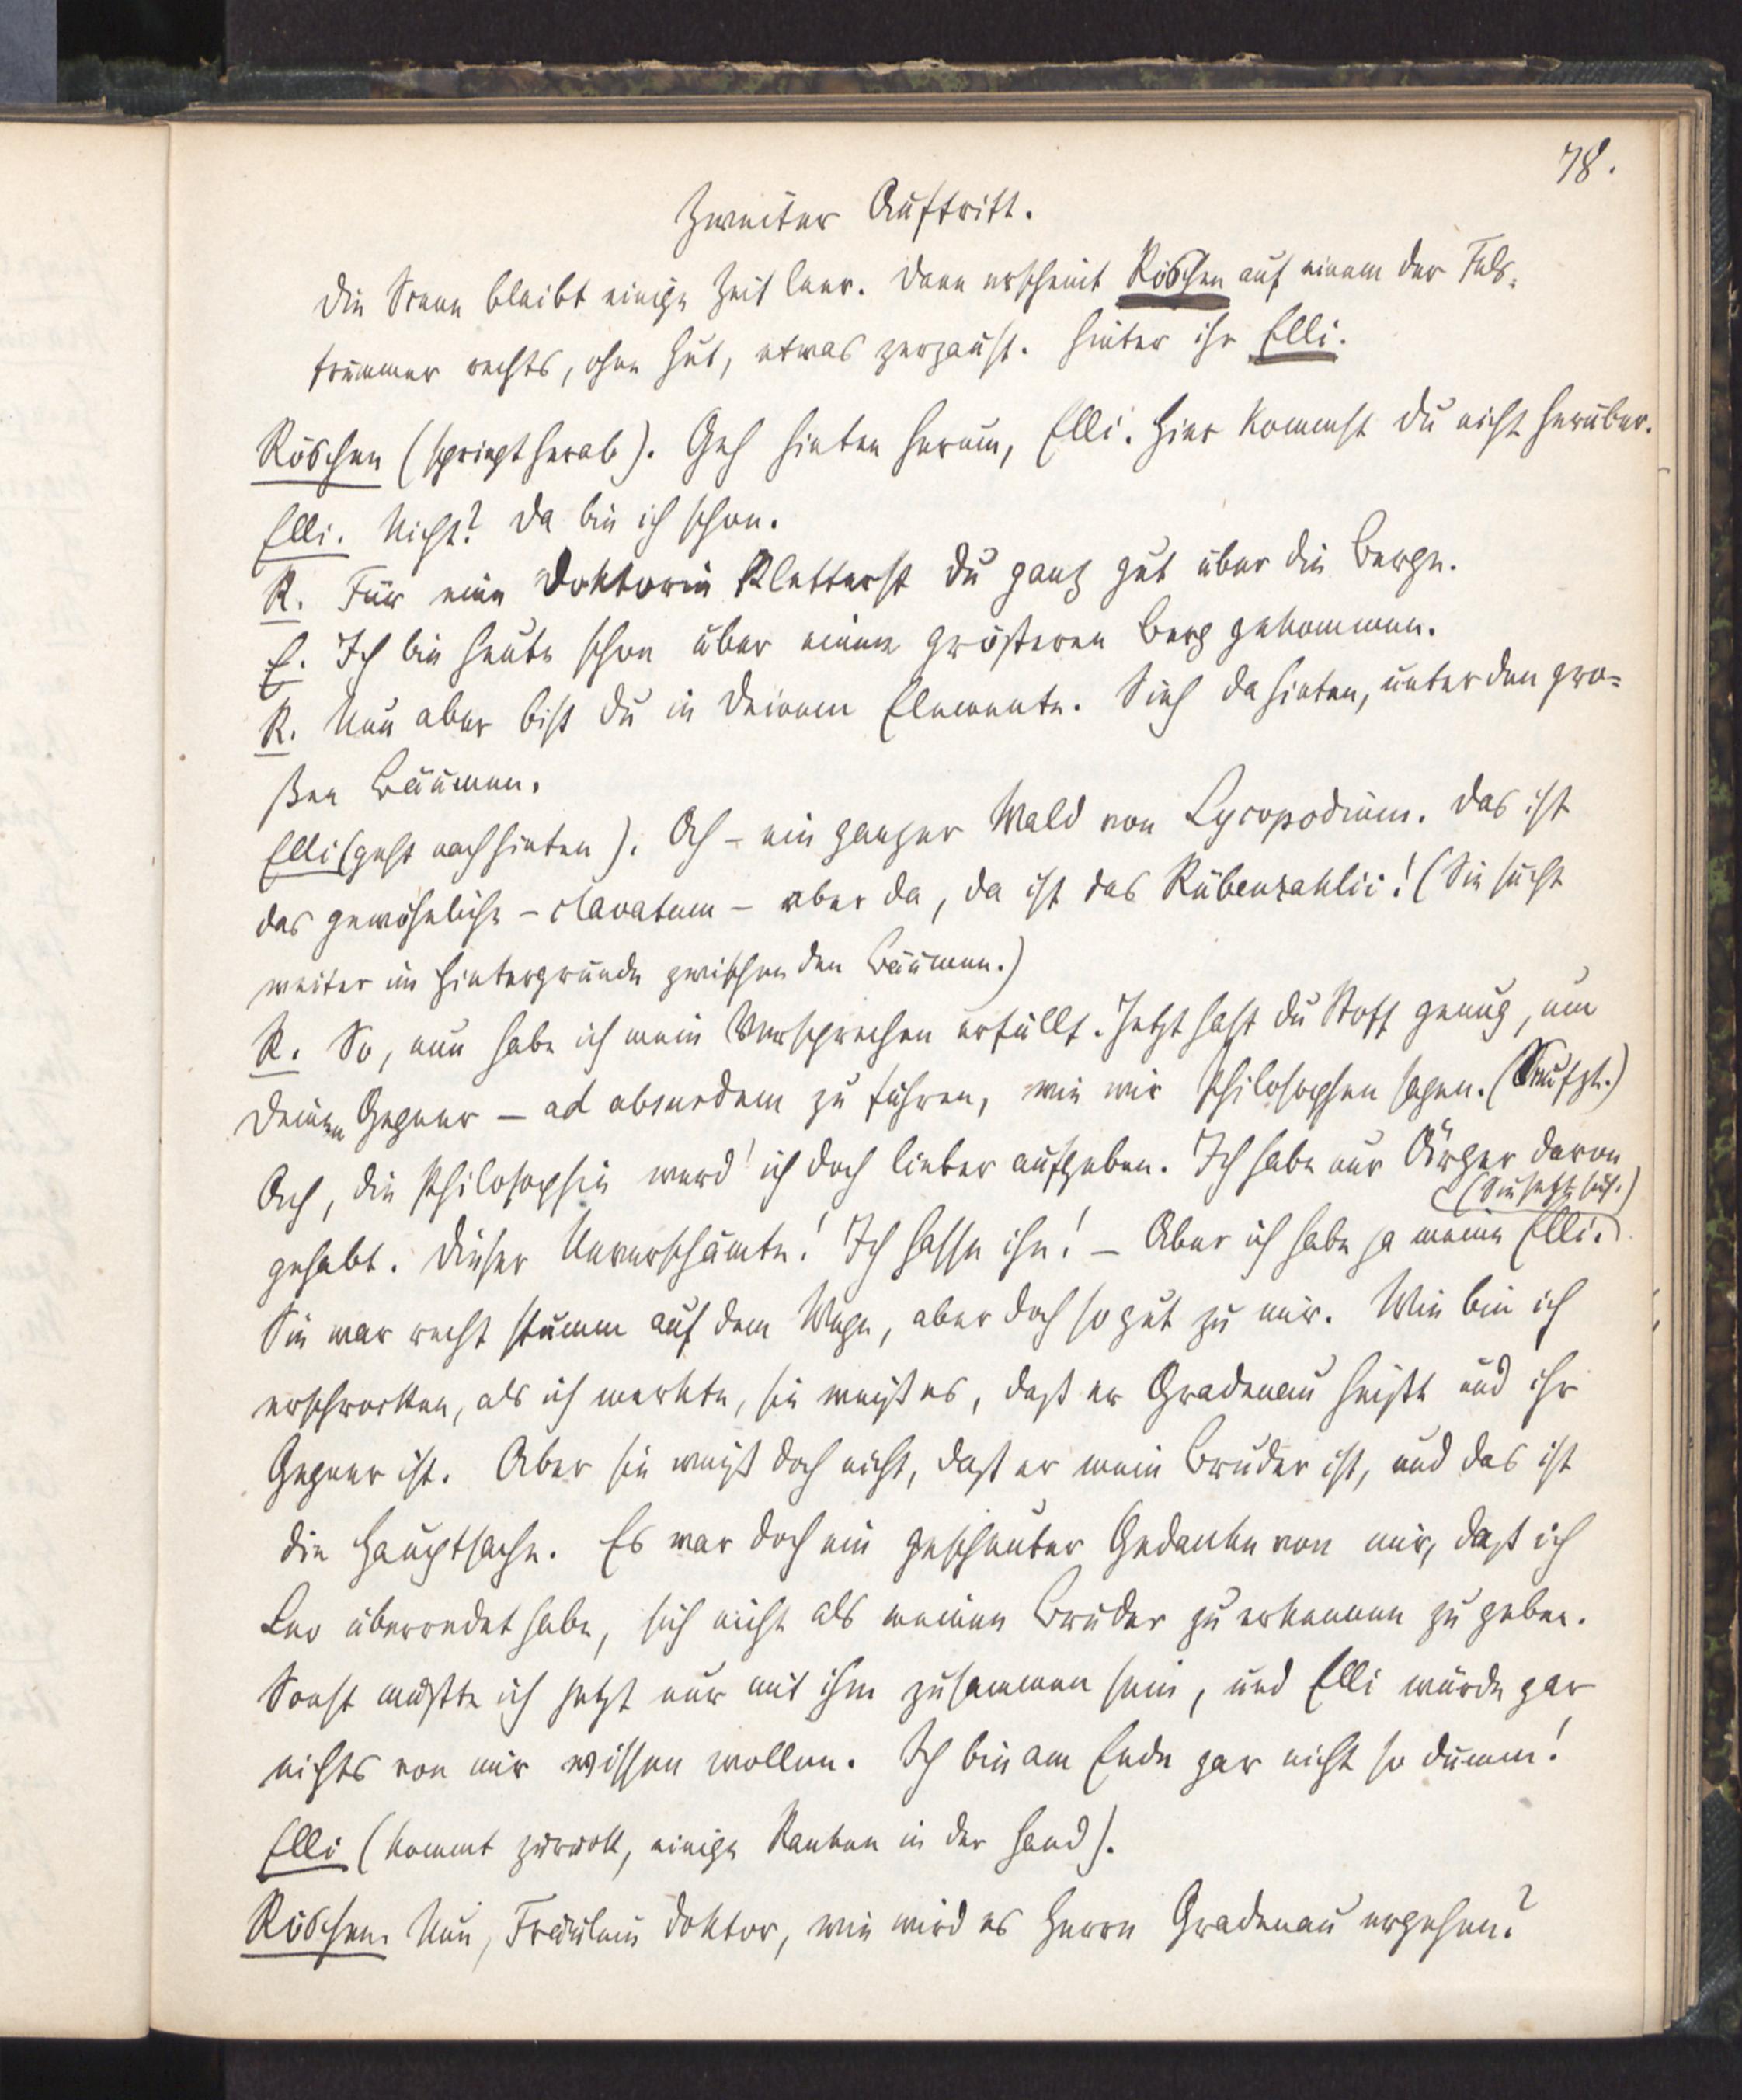 78.
Zweiter Auftritt.
Die Scene bleibt einige Zeit leer. Dann erscheint Röschen auf einem der Fels-
trümmer rechts, ohne Hut, etwas zerzaust. Hinter ihr Elli.
Röschen (springt herab). Geh hinten herum, Elli. Hier kommst Du nicht herüber.
Elli. Nicht? Da bin ich schon.
R. Für eine Doktorin kletterst Du ganz gut über die Berge.
E. Ich bin heute schon über einen größeren Berg gekommen.
R. Nun aber bist Du in Deinem Elemente. Sieh da hinten, unter den gro-
ßen Bäumen.
Elli (geht nach hinten). Oh – ein ganzer Wald von Lycopodium. Das ist
das gewöhnliche – clavatum – aber da, da ist das Rübenzahlii! (Sie sucht
weiter im Hintergrunde zwischen den Bäumen.)
R. So, nun habe ich mein Versprechen erfüllt. Jetzt hast Du Stoff genug, um
Deinen Gegner – ad absurdum zu führen, wie wir Philosophen sagen. (Seufzt.)
Ach, die Philosophie werd' ich doch lieber aufgeben. Ich habe nur Ärger davon
(Sie setzt sich.)
gehabt. Dieser Unverschämte! Ich hasse ihn! – Aber ich habe ja meine Elli.
Sie war recht stumm auf dem Wege, aber doch so gut zu mir. Wie bin ich
erschrocken, als ich merkte, sie weiß es, daß er Gradenau heißt und ihr
Gegner ist. Aber sie weiß doch nicht, daß er mein Bruder ist, und das ist
die Hauptsache. Es war doch ein gescheuter Gedanke von mir, daß ich
Leo überredet habe, sich nicht als meinen Bruder zu erkennen zu geben.
Sonst müßte ich jetzt nur mit ihm zusammen sein, und Elli würde gar
nichts von mir wissen wollen. Ich bin am Ende gar nicht so dumm!
Elli (kommt zurück, einige Ranken in der Hand).
Röschen. Nun, Fräulein Doktor, wie wird es Herrn Gradenau ergehen?